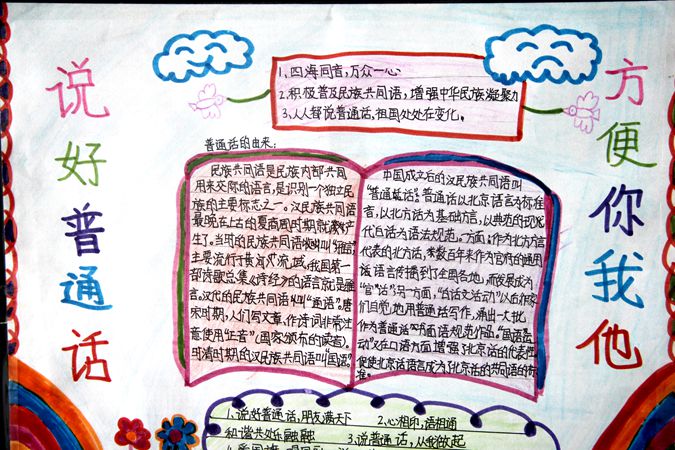 说好普通话
方便你我他
1、四海同音，万众一心
2、积极普及民族共同语，增强中华民族凝聚力
3、人人都说普通话，祖国处处在变化。
普通话的由来：
民族共同语是民族内部共同
用来交际的语言，是识别一个独立民
族的主要标志之一。汉民族共同语
最晚在上古的夏商周时期就
产生了。当时的民族共同语叫"雅言"，
主要流行于黄河流域，我国第一
部诗歌总集《诗经》的语言就是雅
言。汉代的民族共同语叫"通语"。唐
宋时期，人们写文章、作诗词非常注
意使用"正音"（国家颁布的读音）。
明清时期的汉民族共同语叫"国语"。
中国成立后的汉民族共同语叫
"普通话"。普通话以北京语言为标准
音，以北方话为基础方言，以典范的现代
白话为语法规范。一方面，作为北方方言
代表的北方话，数百年来作为官府的通用
语言传播到了全国各地，而发展成为
"官话"；另一方面，"白话文运动"
们自觉地用普通话写作，涌出一大批
作为普通话书面语规范作品。"国语运
动"又在口语方面增强了北京话的代表性，
促使北京话语言成为了北京话的共同语的标
准。
1、说好普通话，朋友满天下 2、心相印，语相通
和谐共处乐融融 3、说普通话，从我做起